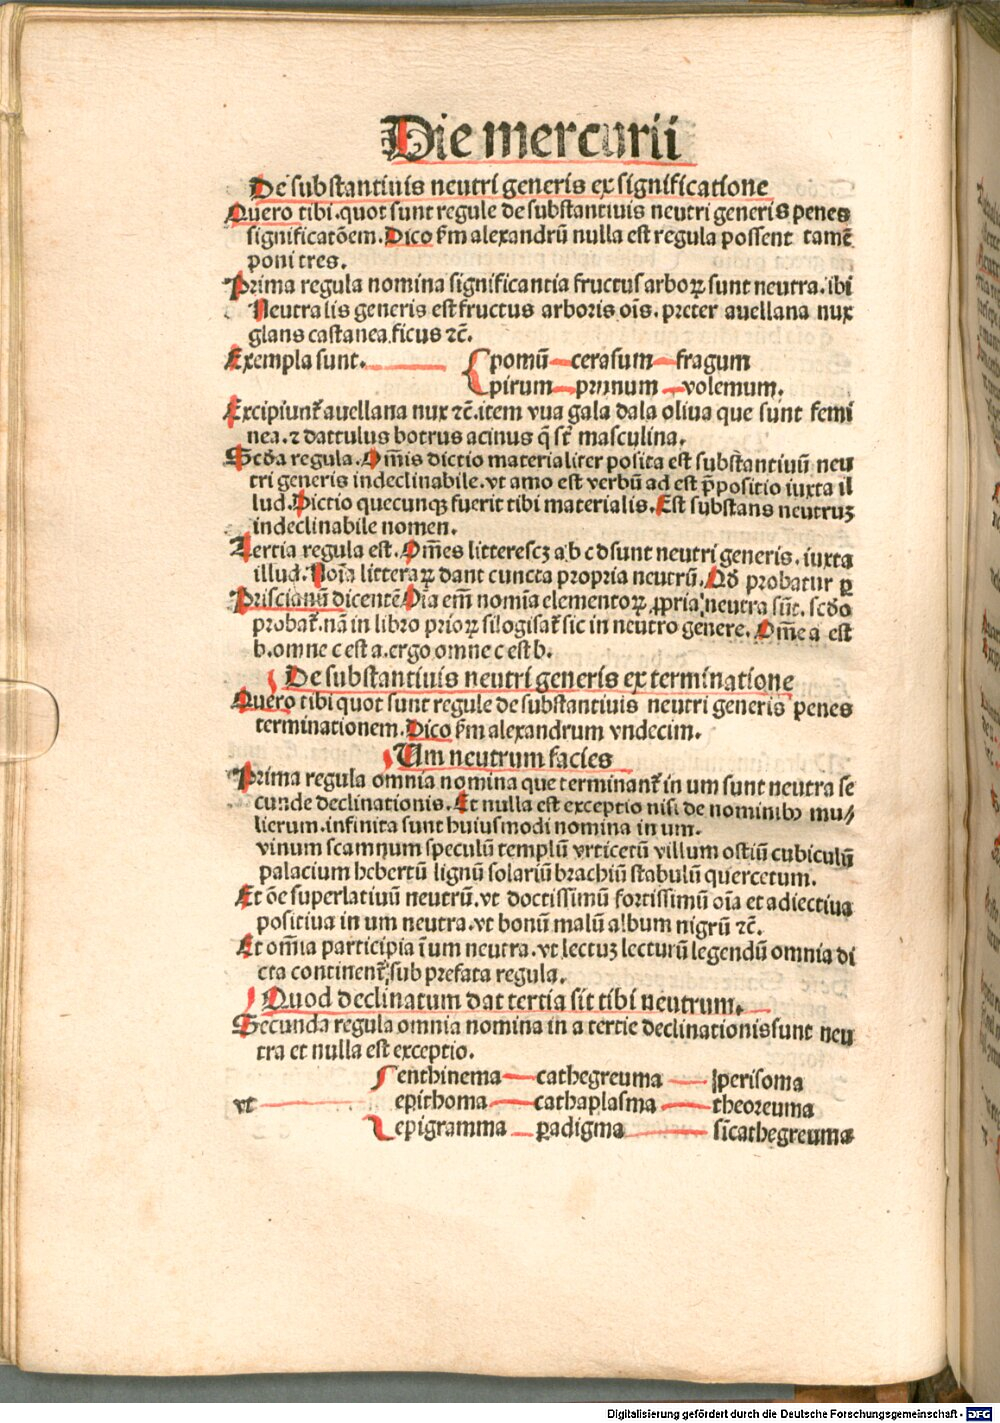 Die mercurii
De substantiuis neutri generis ex significatione
Quero tibi .quot sunt regule de substantiuis neutri generis penes
significatōem. Dico ẜm alexandrū nulla est regula possent tamē
poni tres.
Prima regula nomina significantia fructus arboꝝ sunt neutra. ibi
Neutralis generis est fructus arboris oīs. preter auellana nux
glans castanea ficus ⁊c̄.
Exempla sunt. pomū cerasum fragum
pirum prunum volemum.
Excipiunt᷑ auellana nux ⁊c̄. item vua gala dala oliua que sunt femi
nea. ⁊ dattulus botrus acinus q̄ st̄ masculina.
Scd̄a regula. Om̄is dictio materialiter posita est substantiuū neu
tri generis indeclinabile. vt amo est verbū ad est p̄positio iuxta il
lud. Dictio quecunqꝫ fuerit tibi materialis. Est substans neutruꝫ
indeclinabile nomen.
Tertia regula est. Om̄es littere scꝫ a b c d sunt neutri generis. iuxta
illud. Noīa litteraꝝ dant cuncta propria neutrū. Qd̄ probatur ꝑ
Priscianū dicentē Oīa em̄ nomīa elementoꝝ ꝓpria neutra sūt. scd̄o
probat᷑. nā in libro prioꝝ silogisat᷑ sic in neutro genere. Om̄e a est
b. omne c est a. ergo omne c est b.
De substantiuis neutri generis ex terminatione
Quero tibi quot sunt regule de substantiuis neutri generis penes
terminationem. Dico ẜm alexandrum vndecim.
Um neutrum facies
Prima regula omnia nomina que terminant᷑ in um sunt neutra se
cunde declinationis. Et nulla est exceptio nisi de nominibꝰ mu⸗
lierum. infinita sunt huiusmodi nomina in um.
vinum scamnum speculū templū vrticetū villum ostiū cubiculū
palacium hebertū lignū solariū brachiū stabulū quercetum.
Et ōe superlatiuū neutrū. vt doctissimū fortissimū oīa et adiectiua
positiua in um neutra. vt bonū malū album nigrū ⁊c̄.
Et om̄ia participia ī um neutra. vt lectuꝫ lecturū legendū omnia di
cta continent᷑ sub prefata regula.
Quod declinatum dat tertia sit tibi neutrum.
Secunda regula omnia nomina in a tertie declinationis sunt neu
tra et nulla est exceptio.
enthinema cathegreuma perisoma
vt epithoma cathaplasma theoreuma
epigramma ꝑadigma sīcathegreuma
Digitalisierung gefördert durch die Deutsche Forschungsgemeinschaft - DFG